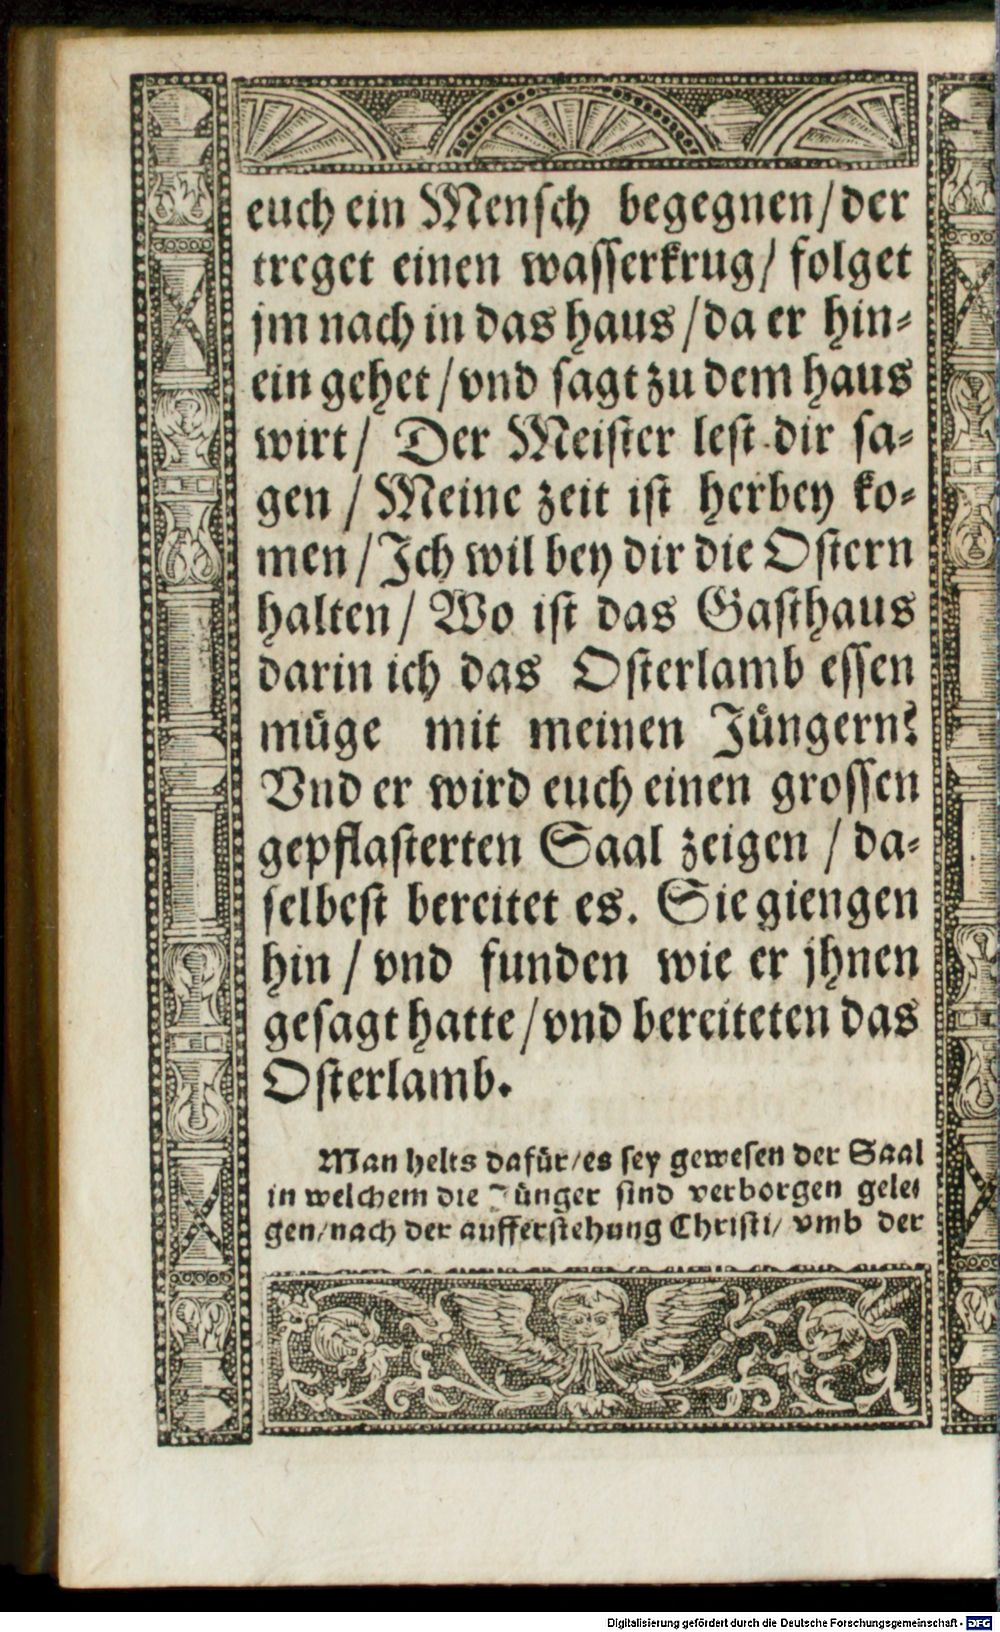 euch ein Menſch begegnen/der
treget einen waſſerkrug/ folget
jm nach in das haus/da er hin⸗
ein gehet/vnd ſagt zu dem haus
wirt/ Der Meiſter leſt dir ſa⸗
gen/Meine zeit iſt herbey ko⸗
men/Ich wil bey dir die Oſtern
halten/ Wo iſt das Gaſthaus
darin ich das Oſterlamb eſſen
müge mit meinen Jüngern?
Vnd er wird euch einen groſſen
gepflaſterten Saal zeigen/da⸗
ſelbeſt bereitet es. Sie giengen
hin/vnd funden wie er jhnen
geſagt hatte/vnd bereiteten das
Oſterlamb.
Man helts dafür/es ſey geweſen der Saal
in welchem die Jünger ſind verborgen gele⸗
gen/nach der aufferſtehung Chriſti/ vmb der
Digitalisierung gefördert durch die Deutsche Forschungsgemeinschaft - DFG